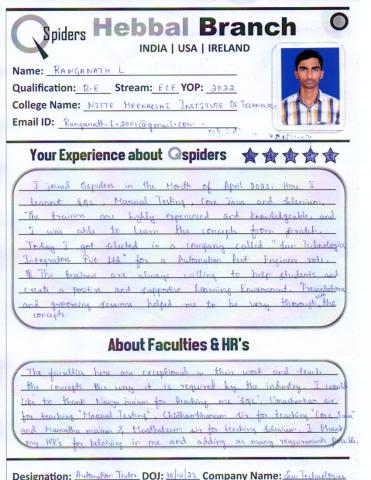 QSpiders Hebbal Branch
INDIA | USA | IRELAND
Name: RANGANATH L
Qualification: B.E Stream: ECE YOP: 2022
College Name: NITTE MEENAKSHI INSTITUTE OF TECHNOLOGY
Email ID: Ranganath.L.2001@gmail.com.
Your Experience about Qspiders
I joined Qspiders in the Month of April 2023. Here I
learnt SQL, Manual Testing, Core Java and Selenium.
The trainers are highly experienced and knowledgeable, and
I was able to learn the concepts from scratch.
Today I got selected in a company called "Sun Technology
Integrators Pvt Ltd" for a Automation test Engineer role.
The trainers are always willing to help students and
create a positive and supportive Learning Environment. Presentations
and grooming sessions helped me to be very thorough with the
concepts
About Faculties & HR's
The faculties here are exceptional in their work and teach
the concepts the way it is required by the industry. I would
like to thank ma'am for teaching me 'SQL', Umashankar sir
for teaching "Manual Testing", sir for teaching "Core Java"
and Mamatha ma'am & sir for teaching Selenium. I thank
my HR's for believing in me and adding as many requirements possible.
Designation: Automation Tester DOJ: 30/10/23 Company Name: Sun Technologies